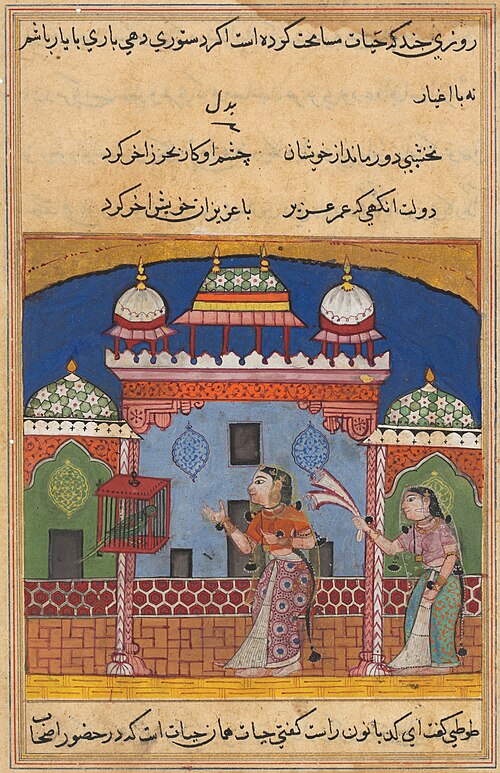 روزی چند که حیات مسامحت کرده است اکر دستوری دهی باری با یار باشم
نه با اغیار
نخشبی دور ماند از خوشان چشم او کار بحر زاخر کرد
دولت انکهی که عمر عزیز با عزیزان خویش اخر کرد
طوطی کفت ای کدبانو راست کفتی حیات همان حیات است که در حضور اصحاب